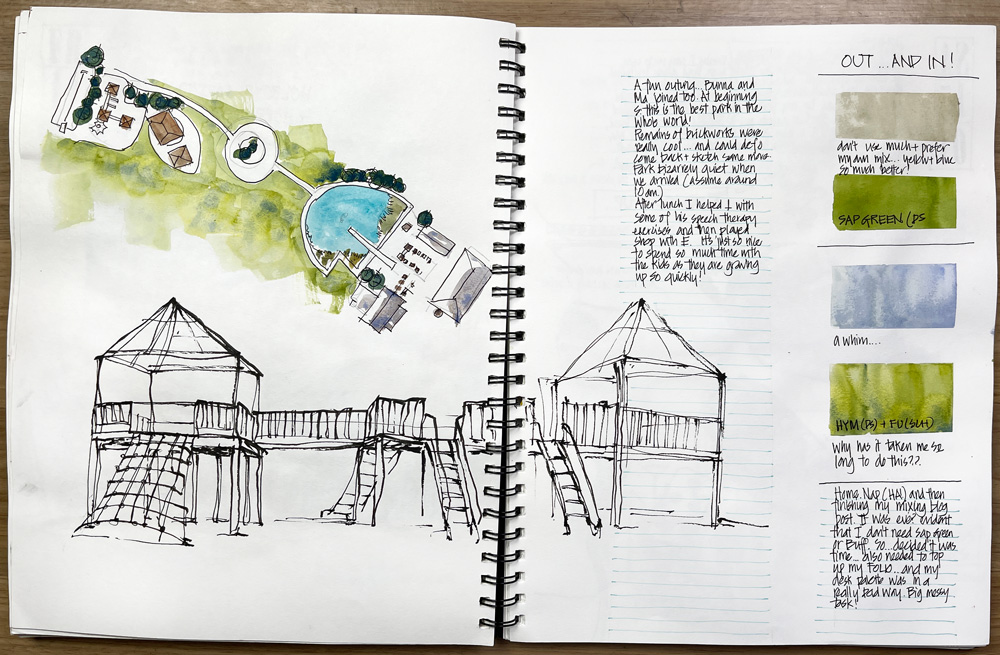 A fun outing... Bunna and
Ma joined too. At beginning
& this is the best park in the
whole world!
Remains of brickworks were
really cool... and could defo
come back + sketch some more.
Park bizarrely quiet when
we arrived (assume around
10am)
After lunch I helped J with
some of his speech therapy
exercises and then played
shop with E. It's just so nice
to spend so much time with
the kids as they are growing
up so quickly!
OUT...AND IN!
don't use much + prefer
my own mix... yellow + blue
so much better!
SAP GREEN (DS
a whim....
HYM (DS) + FU (SCH)
Why has it taken me so
long to do this??
Home. Nap (HA!) and then
finishing my mixing blog
post. It was evident
that I don't need sap green
or Buff. So... decided it was
time... also needed to top
up my FOLIO... and my
desk palette was in a
really bad way. Big messy
task!